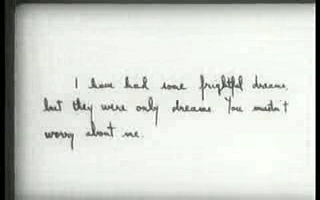 I have had some frightful dreams,
but they were only dreams. You mustn't
worry about me.